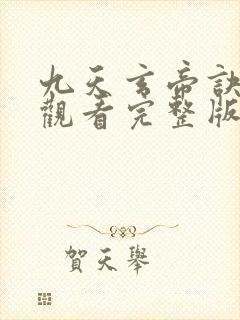 九天玄帝訣
觀看完整版
賀天舉